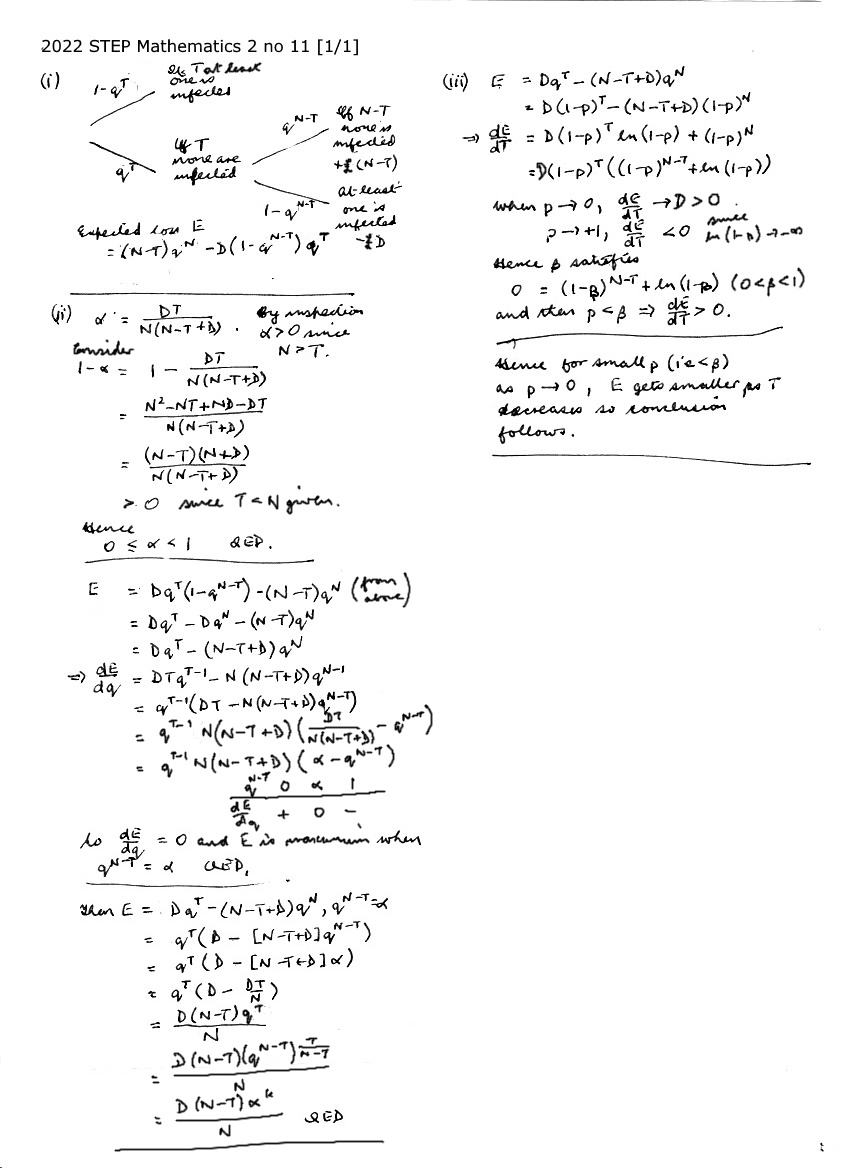 2022 STEP Mathematics 2 no 11 [1/1]
(i)
1-q^T
If T at least
one is
infected
q^T
If T
none are
infected
q^{N-T}
If N-T
none is
infected
+£(N-T)
1-q^{N-T}
at least
one is
infected
-£D
Expected loss E
= (N-T)q^N - D(1-q^{N-T})q^T
(ii) α = DT / N(N-T+D) . By inspection
α>0 since
N>T.
Consider
1-α = 1 - DT / N(N-T+D)
= N²-NT+ND-DT / N(N-T+D)
= (N-T)(N+D) / N(N-T+D)
> 0 since T<N given.
Hence
0 ≤ α < 1 QED.
E = Dq^T(1-q^{N-T}) - (N-T)q^N (from above)
= Dq^T - Dq^N - (N-T)q^N
= Dq^T - (N-T+D)q^N
⇒ dE/dq = DTq^{T-1} - N(N-T+D)q^{N-1}
= q^{T-1}(DT - N(N-T+D)q^{N-T})
= q^{T-1} N(N-T+D)(DT / N(N-T+D) - q^{N-T})
= q^{T-1} N(N-T+D)(α - q^{N-T})
q^{N-T} 0 α 1
dE/dq + 0 -
So dE/dq = 0 and E is maximum when
q^{N-T} = α QED.
Then E = Dq^T - (N-T+D)q^N, q^{N-T}=α
= q^T(D - [N-T+D]q^{N-T})
= q^T(D - [N-T+D]α)
= q^T(D - DT/N)
= D(N-T)q^T / N
= D(N-T)(q^{N-T})^{T/(N-T)} / N
= D(N-T)α^k / N QED
(iii) E = Dq^T - (N-T+D)q^N
= D(1-p)^T - (N-T+D)(1-p)^N
⇒ dE/dT = D(1-p)^T ln(1-p) + (1-p)^N
= D(1-p)^T((1-p)^{N-T} + ln(1-p))
when p→0, dE/dT → D > 0 .
p→+1, dE/dT < 0 since ln(1-p)→-∞
Hence β satisfies
0 = (1-β)^{N-T} + ln(1-β) (0<β<1)
and then p<β ⇒ dE/dT > 0.
Hence for small p (i.e <β)
as p→0, E gets smaller as T
decreases so conclusion
follows.